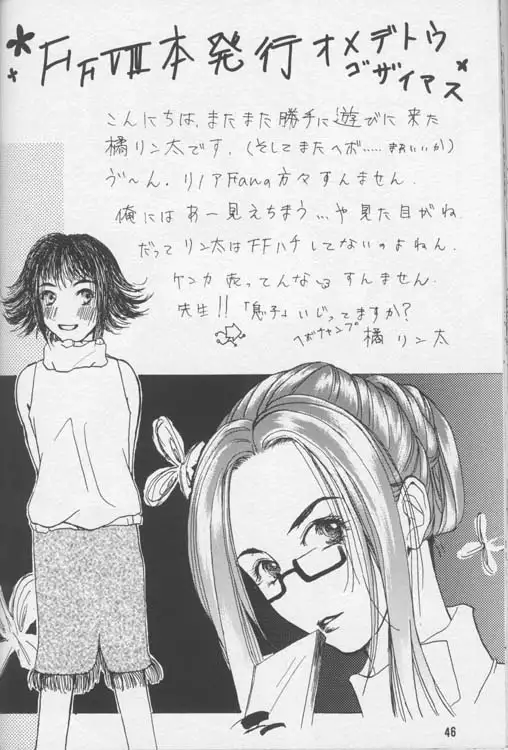 FFVIII本発行オメデトウ
ゴザイマス
こんにちは、またまた勝手に遊びに来た
橘リン太です。(そしてまたヘボ……まあいいか)
ゔ〜ん。リノアFanの方々すんません。
俺にはあー見えちまう…や見た目がね。
だってリン太はFFハチしてないのよねん。
ケンカ売ってんな すんません。
先生!!「息子」いじってますか?
ヘボチャンプ 橘リン太
46